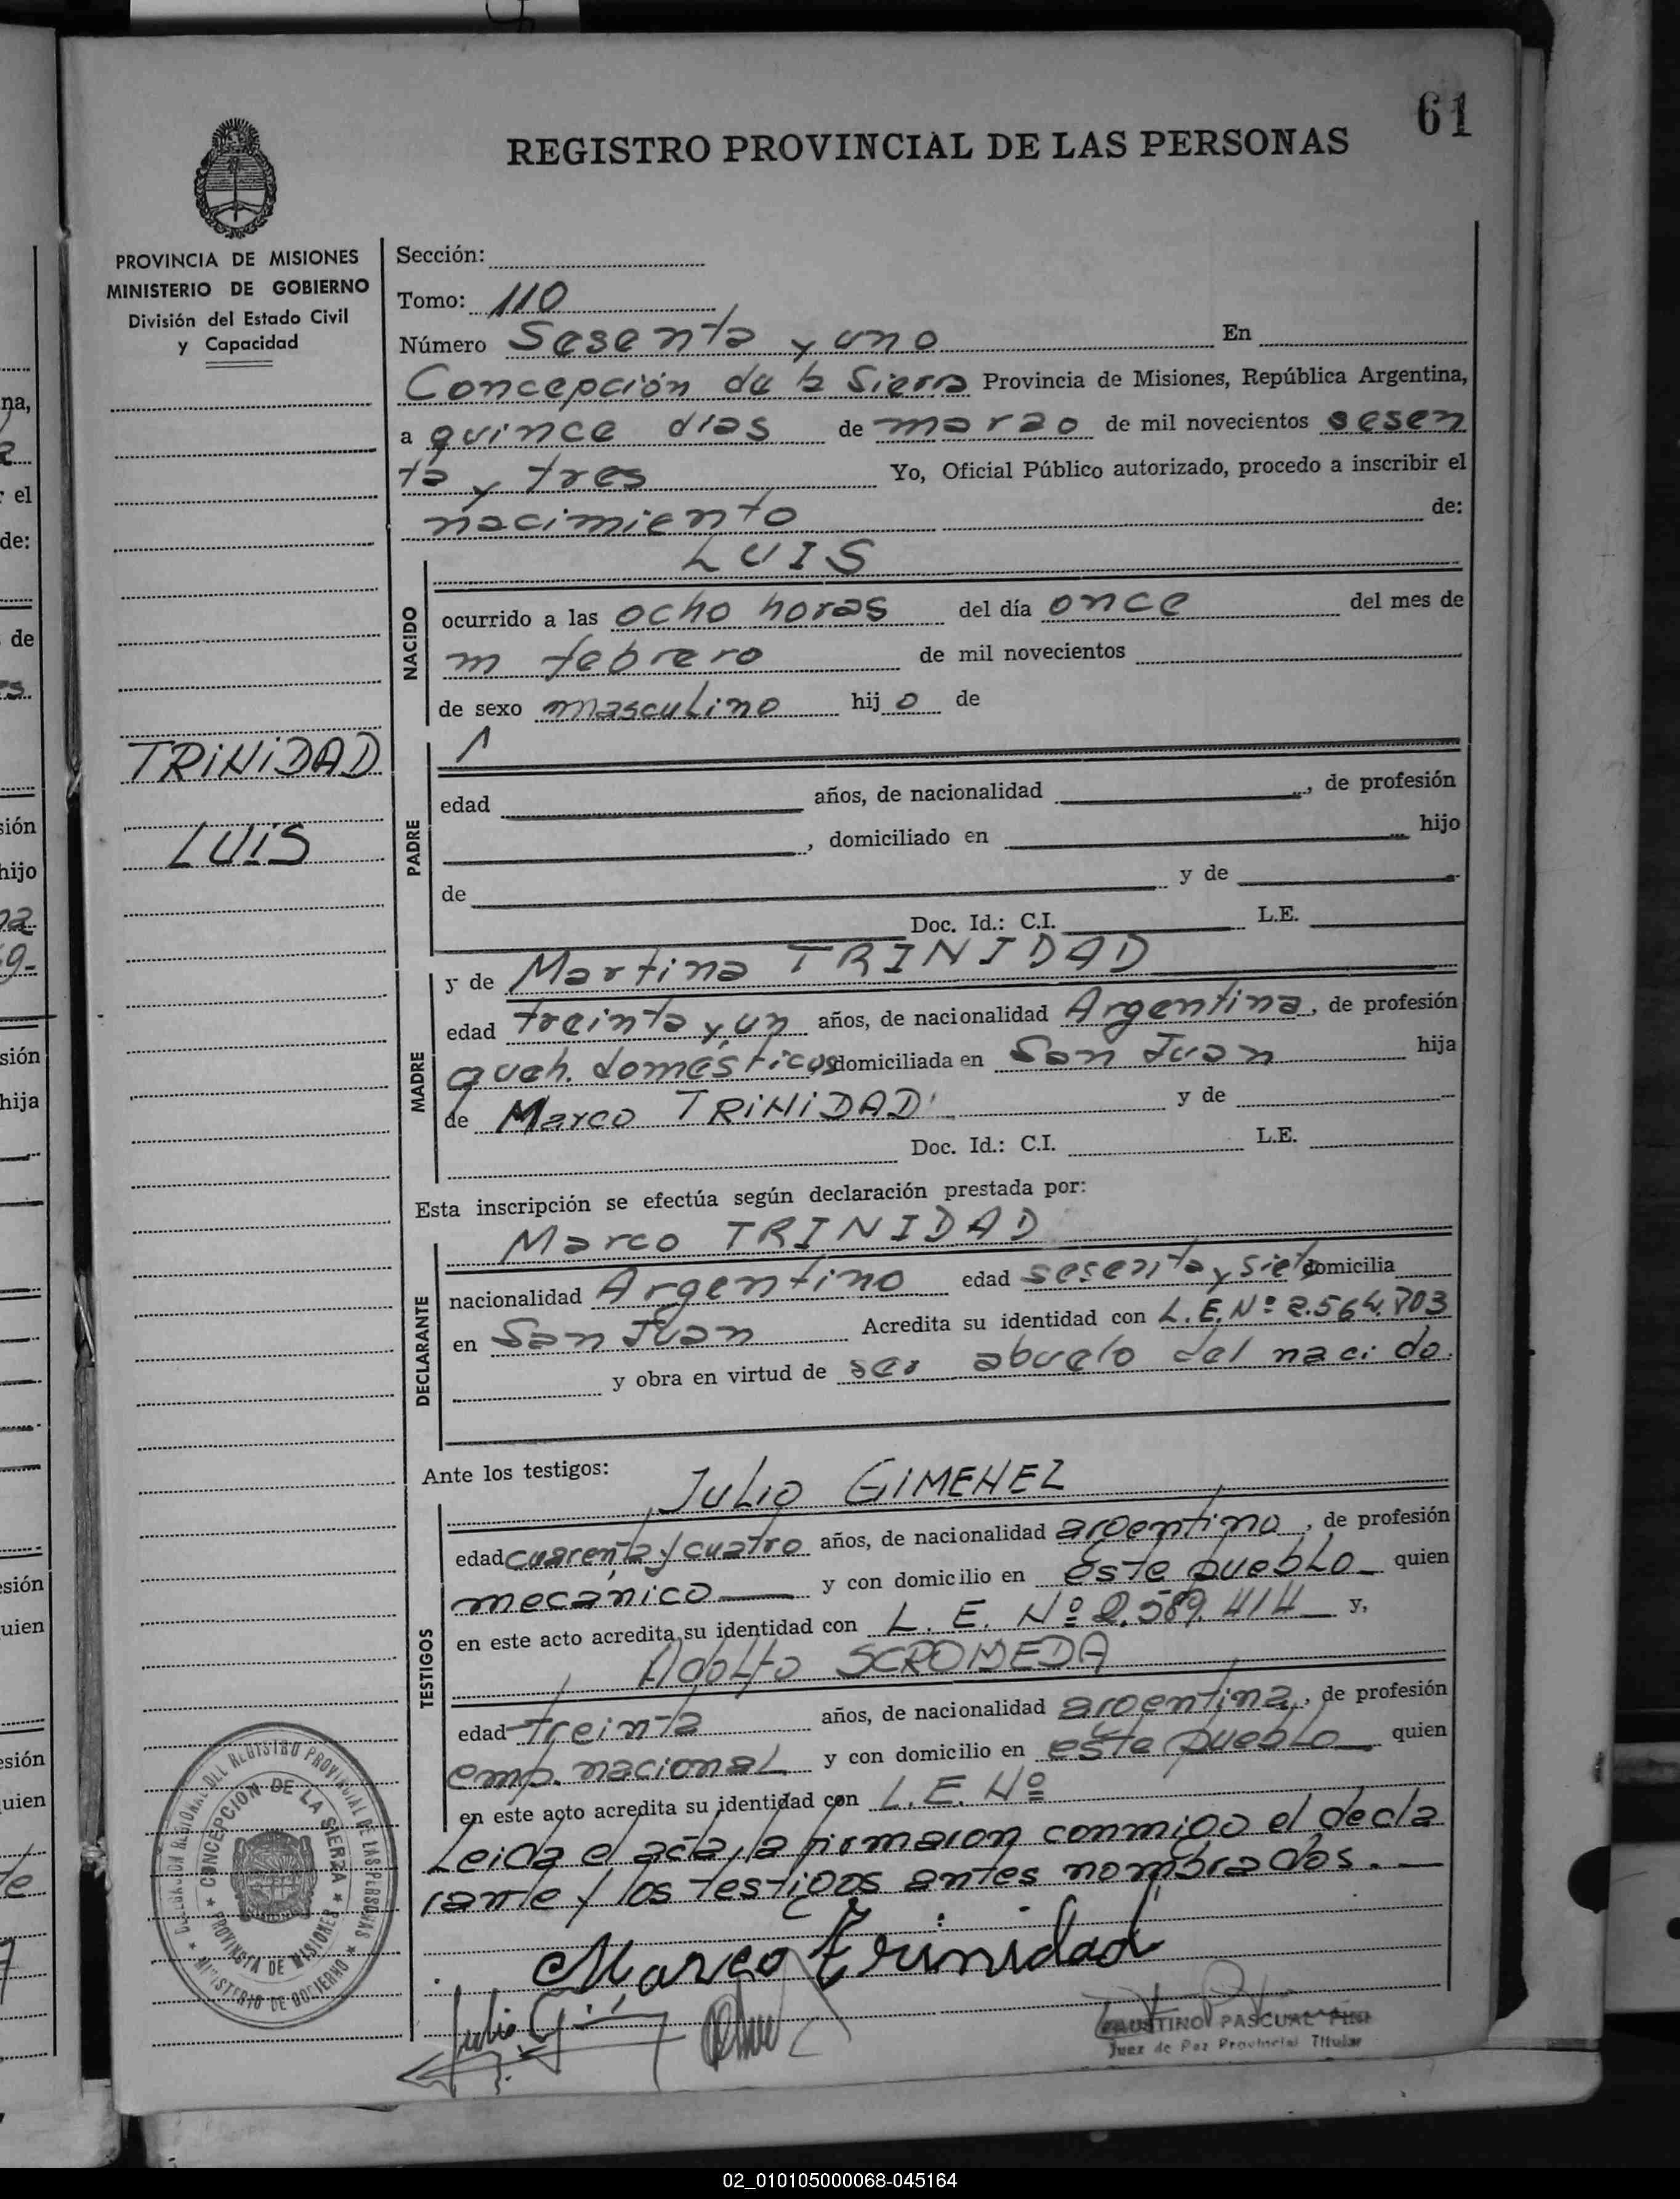 61
REGISTRO PROVINCIAL DE LAS PERSONAS
PROVINCIA DE MISIONES
MINISTERIO DE GOBIERNO
División del Estado Civil
y Capacidad
TRINIDAD
LUIS
Sección:
Tomo: 110
Número Sesenta y uno En
Concepción de la Sierra Provincia de Misiones, República Argentina,
a quince dias de marzo de mil novecientos sesen
ta y tres Yo, Oficial Público autorizado, procedo a inscribir el
nacimiento de:
LUIS
NACIDO
ocurrido a las ocho horas del día once del mes de
m febrero de mil novecientos
de sexo masculino hij o de
PADRE
edad años, de nacionalidad , de profesión
, domiciliado en hijo
de y de
Doc. Id.: C.I. L.E.
MADRE
y de Martina TRINIDAD
edad treinta y un años, de nacionalidad Argentina, de profesión
queh. domésticos domiciliada en San Juan hija
de Marco TRINIDAD y de
Doc. Id.: C.I. L.E.
Esta inscripción se efectúa según declaración prestada por:
DECLARANTE
Marco TRINIDAD
nacionalidad Argentino edad sesenta y siete domicilia
en San Juan Acredita su identidad con L.E. Nº 2.564.703
y obra en virtud de ser abuelo del nacido.
Ante los testigos:
TESTIGOS
Julio GIMENEZ
edad cuarenta y cuatro años, de nacionalidad argentino, de profesión
mecánico y con domicilio en este pueblo quien
en este acto acredita su identidad con L. E. Nº 2.589.414 y,
Adolfo SCROMEDA
edad treinta años, de nacionalidad argentina, de profesión
emp. nacional y con domicilio en este pueblo quien
en este acto acredita su identidad con L.E. Nº
Leida el acta, la firmaron conmigo el decla
rante y los testigos antes nombrados.
Marco trinidad
Julio
FAUSTINO PASCUAL PINI
Juez de Paz Provincial Titular
DELEGACIÓN REGIONAL DEL REGISTRO PROVINCIAL DE LAS PERSONAS
MINISTERIO DE GOBIERNO
CONCEPCION DE LA SIERRA
PROVINCIA DE MISIONES
02_010105000068-045164